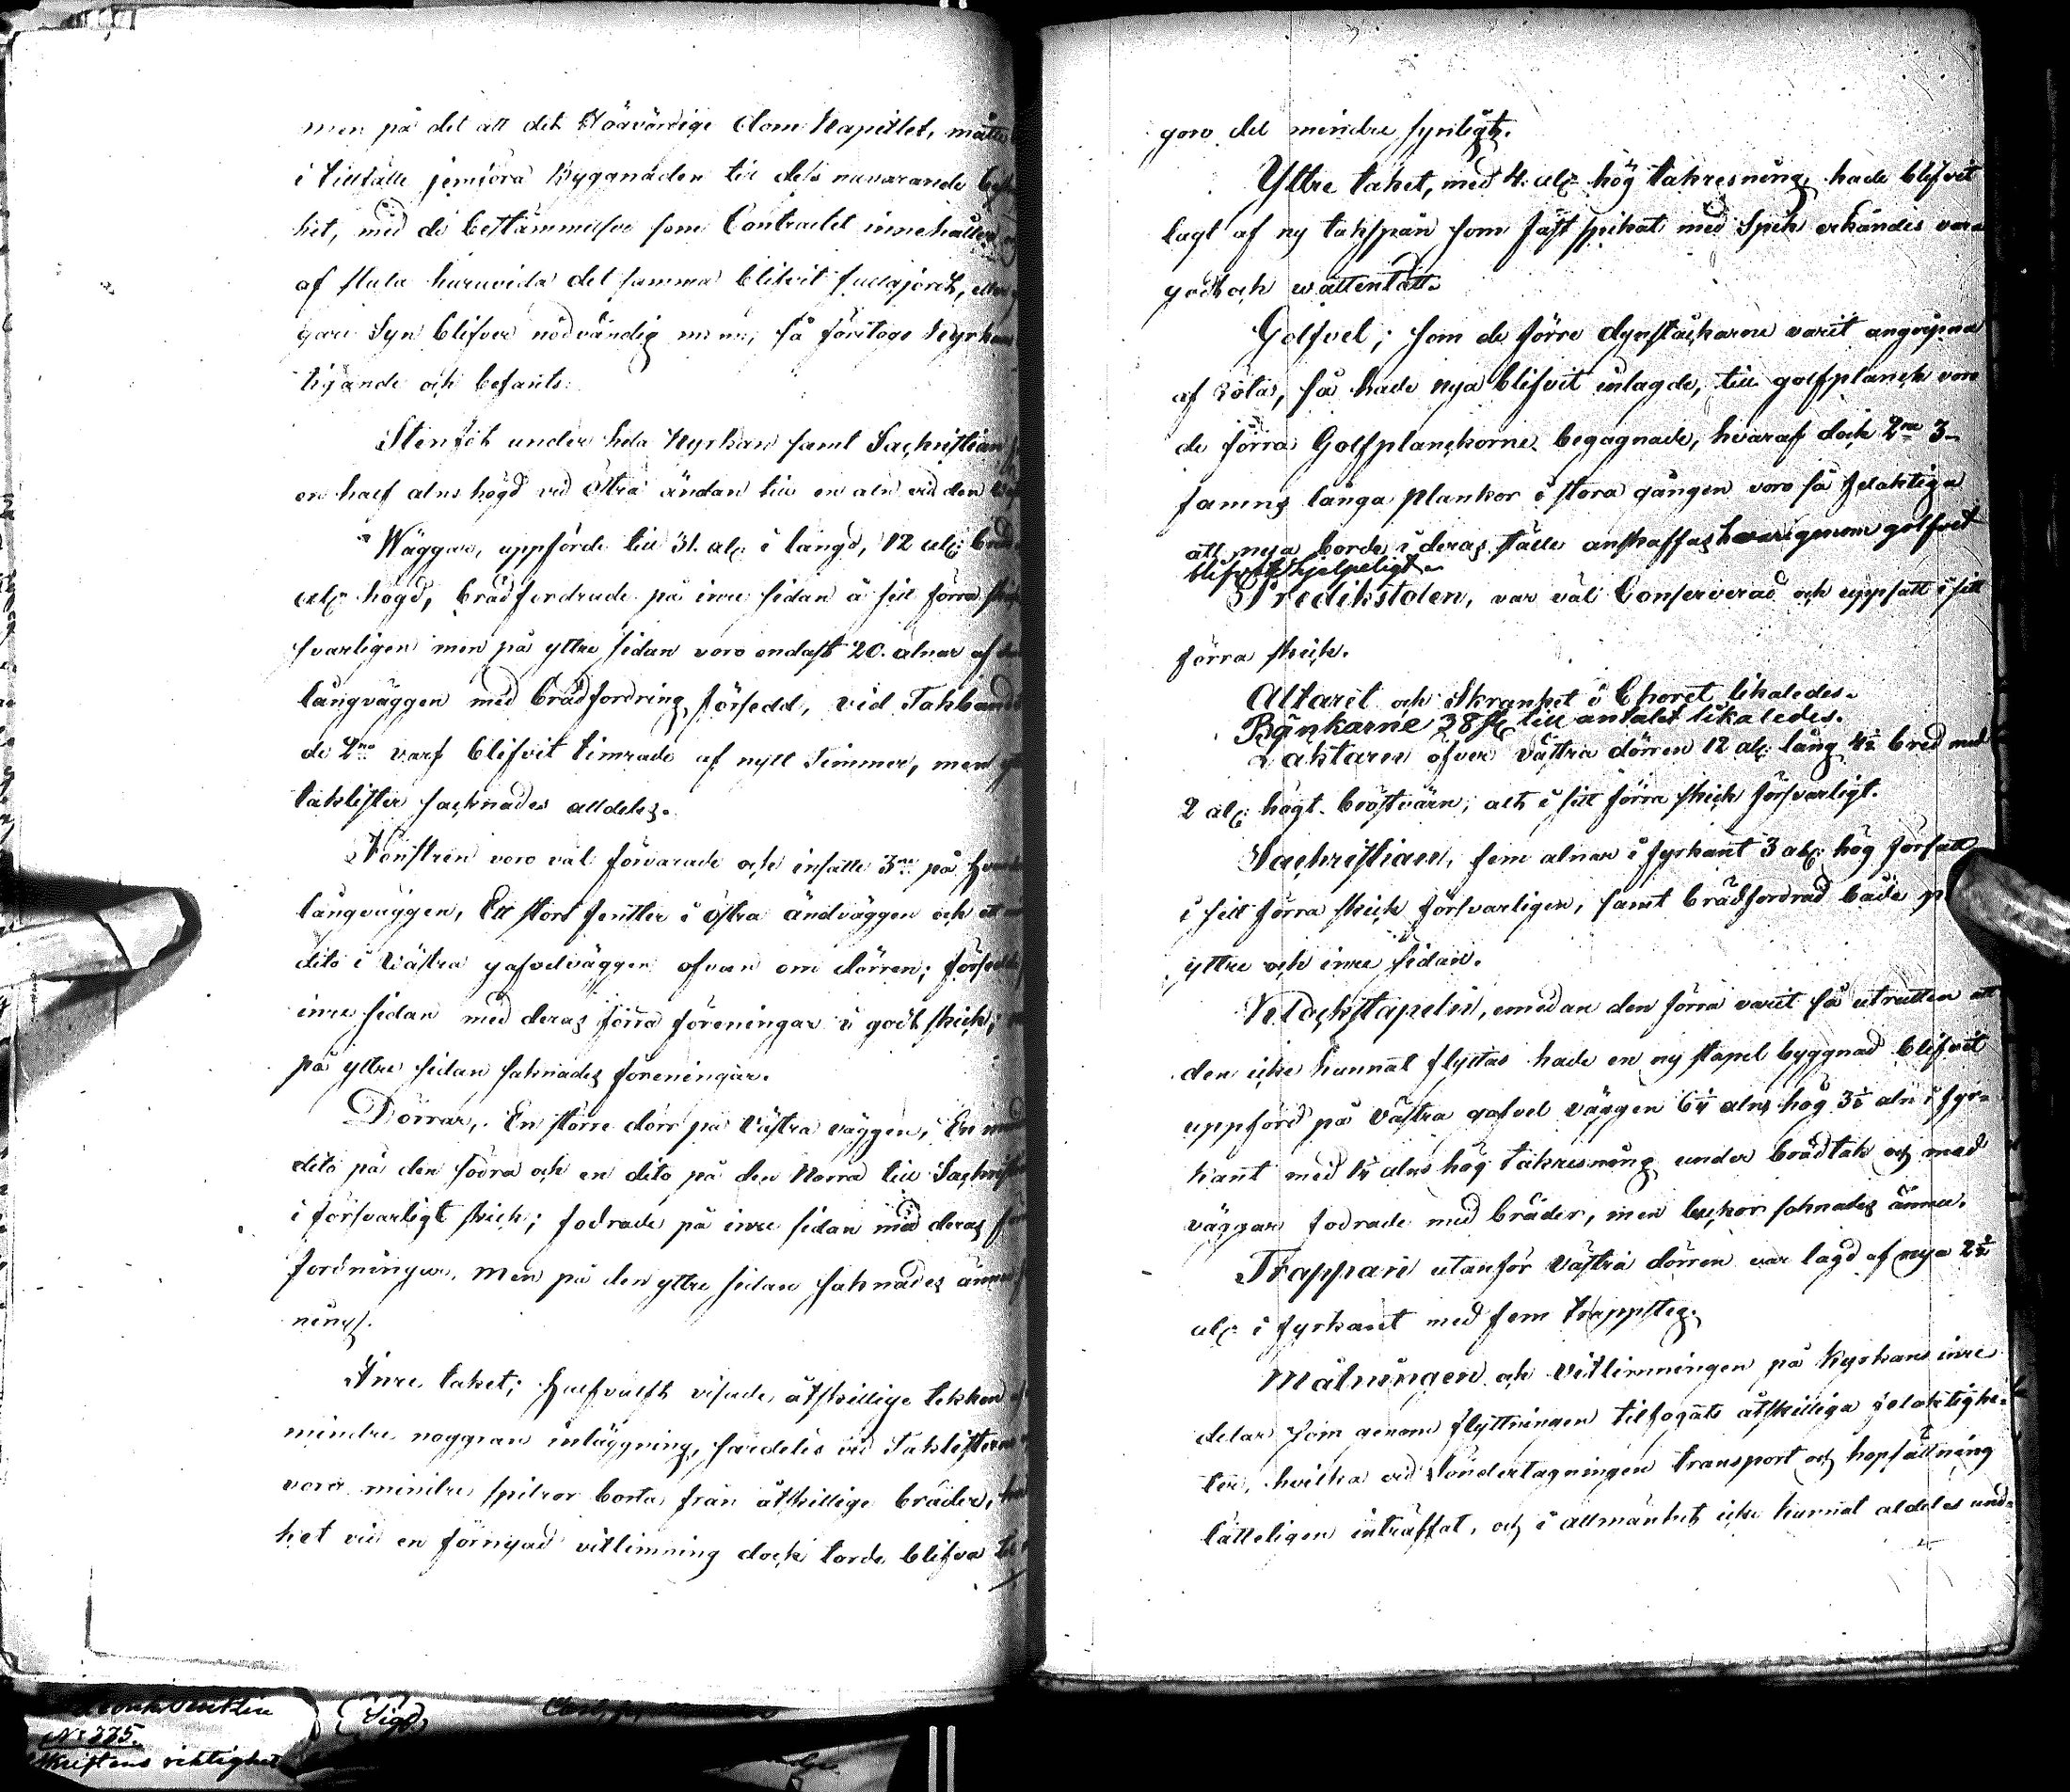 men på det att det Högvördige Dom Kapitlet, måtte
i tillfälle jemföra Byggnaden till dels nuvarande
het, med de bestämmelser som Contractet innehåller
af sluta huruvida det samma blifvit fullgjordt, eller
gare Syn blifver nödvändig m: m:, så företogs Kyrkans
tigande och befants:
Stenfot under hela Kyrkan samt Sackristian
en half alns högd vid Östra ändan till en aln vid den
Wäggar, uppförde till 31. aln: i längd, 12 aln: bredd
aln: högd, brädfordrade på inre sidan i sitt förra skick
svarligen men på yttre sidan voro endast 20. alnar af
långväggen med brädfordring försedd, vid Takbandet
de 2ne varf blifvit timrade af nytt Timmer, men
taklister sacknades alldeles.
Fönstren voro väl förvarade och insatte 3ne på hvardera
långväggen, Ett stort fenster i östra ändväggen och ett
dito i Wästra gafvelväggen ofvan om dörren; försedde
inre sidan med deras förra föreningar i godt skick;
på yttre sidan saknades föreningar.
Dörrar,. En större dörr på Västra väggen, En mindre
dito på den södra och en dito på den Norra till Sackristian
i försvarligt skick; fodrade på inre sidan med deras
fordningar, men på den yttre sidan saknades ännu
ning.
Inre taket; halfvalft visade åtskillige tekken
mindre noggran inläggning, særdeles vid Taklisterne
voro mindre spilror borta från åtskillige bräder,
ket vid en förnyad vitlimning dock torde blifva
gom det mindre synligt.
Yttre taket, med 4. aln: hög takresning hade blifvit
lagt af ny takspån som fäst spikat med Spik erkändes vara
godt och vattentätt.
Golfvet; som de förre dynstäckarne varit angripna
af röta, så hade nya blifvit inlagde, till golfplanck voro
de förra Golfplanckorne begagnade, hvaraf dock 2ne 3-
famns långa plankor i stora gången voro så felaktiga
att nya borde i deras ställe anskaffas hvarigenom golfvet
blifvit hjelpeligt.
Predikstolen, var väl Conserverad och uppsatt i sitt
förra skick.
Altaret och Skranket i Choret likaledes.
Bänkarne 38 st till antalet likaledes.
Läktaren öfver västra dörren 12 aln: lång 4½ bred med
2 aln: högt bröstvärn; allt i sitt förra skick försvarligt.
Sackristian, fem alnar i fyrkant 3 aln: hög försatt
i sitt förra skick försvarligen, samt brädfordrad både
yttre och inre sidan.
Klockstapeln, emedan den förra varit så utrutten att
den icke kunnat flyttas hade en ny stapel byggnad blifvit
uppförd på Västra gafvel väggen 6¼ alns hög 3½ aln i fyr-
kant med 1½ alns hög takresning under brädtak och med
väggar fodrade med bräder, men luckor saknades ännu.
Trappan utanför västra dörren var lagd af nya 2½
aln: i fyrkant med fem trappsteg.
Målningen och Vitlimningen på Kyrkans inre
delar som genom flyttningen tilfogats åtskilliga felaktighe-
ter, hvilka vid söndertagningen transport och hopsättning
lätteligen inträffat, och i allmänhet icke kunnat aldeles und-
No 335.
skriftens riktighet
(Sigd)